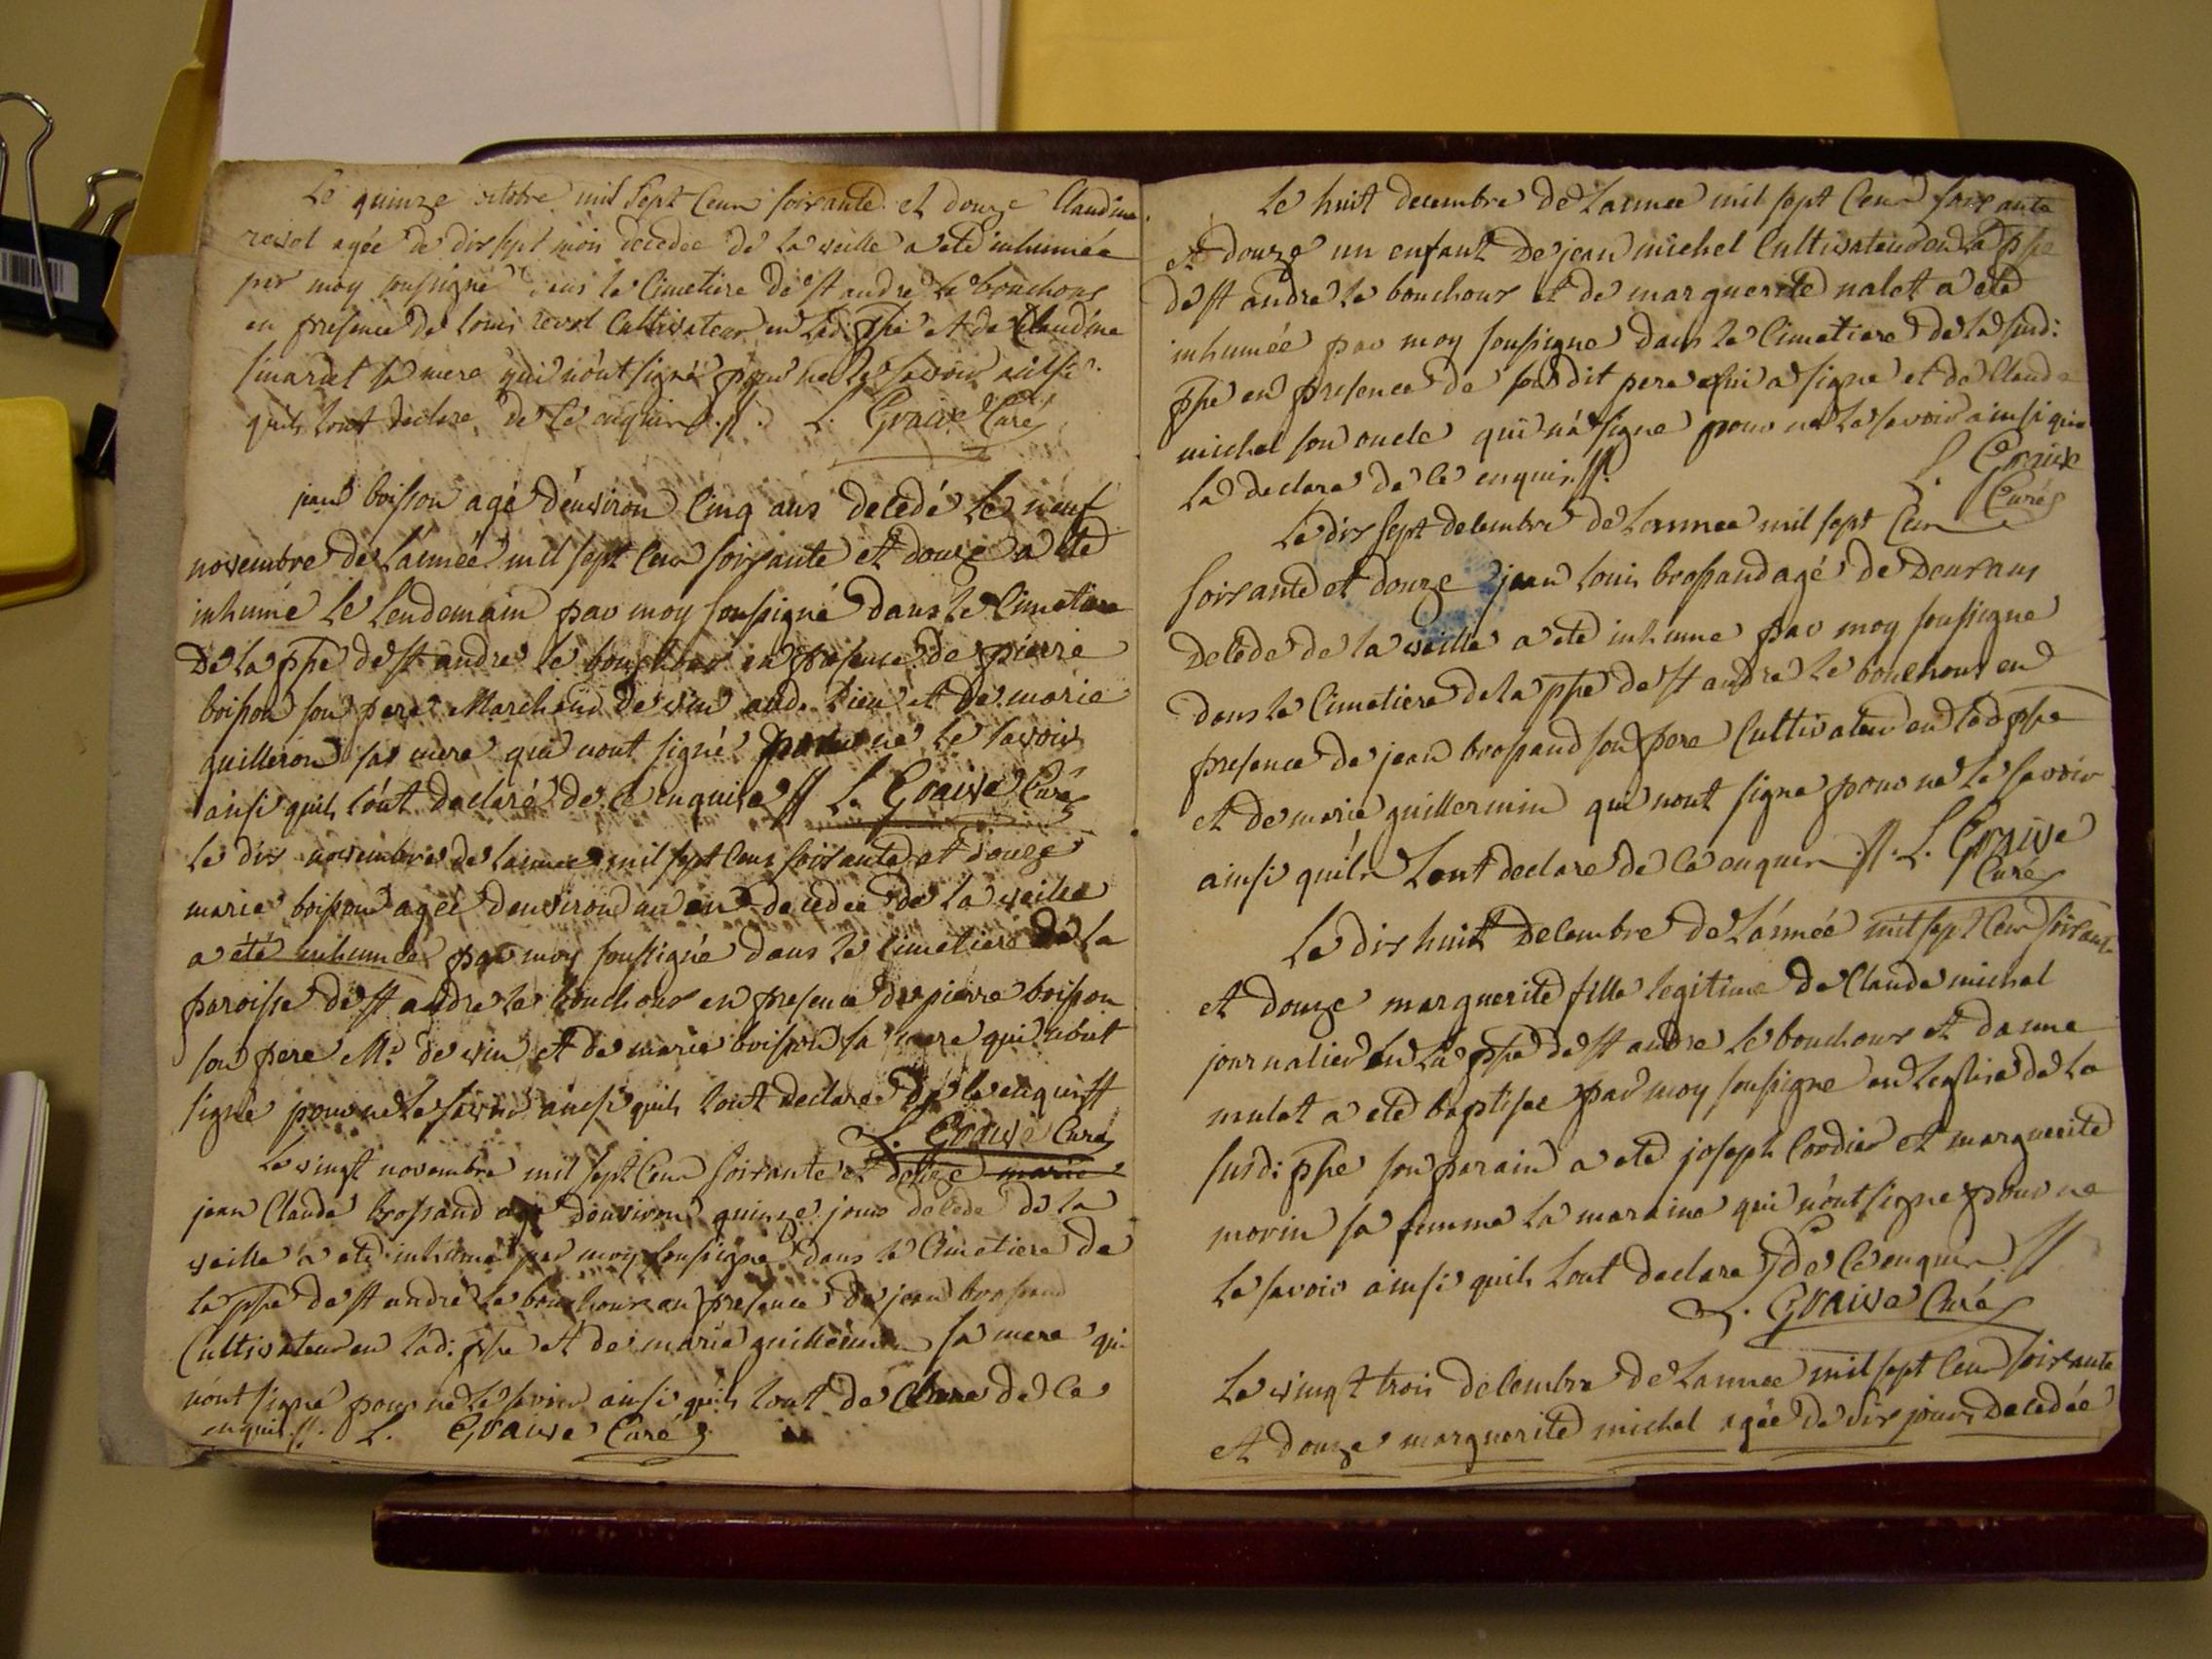 Le quinze octobre mil sept cent soixante et douze Claudine
revol agée de dix sept mois decedée de la veille a eté inhumée
par moy soussigné dans le Cimetiere de st andre le bouchoux
en presence de louis revol Cultivateur en lad. psse et de Claudine
sa mere qui n'ont signé pour ne le savoir ainsi
quils l'ont declare de ce enquis ./. L. Graive Curé
jean boisson agé d'environ Cinq ans decedé le neuf
novembre de l'année mil sept cent soixante et douze a eté
inhumé le lendemain par moy soussigné dans le Cimetiere
De la psse de st andre le bouchoux en presence de pierre
boisson son pere Marchand de vin aud. lieu et de marie
guilleron sa mere qui nont signé pour ne le savoir
ainsi quils l'ont declaré de ce enquis // L. Graive Curé
le dix novembre de lannee mil sept cent soixante et douze
marie boisson agée denviron un an decedée de la veille
a été inhumée par moy soussigné dans le cimetiere de la
paroisse de st andre le bouchoux en presence de pierre boisson
son pere Md. de vin et de marie boisson sa mere qui n'ont
signé pour ne le savoir ainsi quils l'ont declare de ce enquis //
L. Graive Curé
Le vingt novembre mil sept cent soixante et douze marie
jean Claude brossand agé d'environ quinze jours decedé de la
veille a eté inhumé par moy soussigné dans le Cimetiere de
la psse de st andre le bouchoux en presence de jean brossand
Cultivateur en lad. psse et de marie guillermin sa mere qui
n'ont signé pour ne le savoir ainsi quils l'ont declare de ce
enquis //. L. Graive Curé
Le huit decembre de Lannee mil sept cent soixante
et douze un enfant De jean michel Cultivateur en la psse
de st andre le bouchoux et de marguerite nalet a été
inhumée par moy soussigne dans le Cimetiere de la susd:
psse en presence de son dit pere qui a signe et de Claude
michel son oncle qui n'a signe pour ne le savoir ainsi que
la declare de ce enquis //. L. Graive
Curé
Le dix sept decembre de Lannee mil sept Cent
soixante et douze jean louis brossand agé de Deux ans
decede de la veille a eté inhume par moy soussigne
dans le Cimetiere de la psse de st andre le bouchoux en
presence de jean brossand son pere Cultivateur en lad psse
et de marie guillermin qui nont signe pour ne le savoir
ainsi quils Lont declare de ce enquis //. L. Graive
Curé
Le dix huit Decembre de L'année mil sept Cent soixante
et douze marguerite fille legitime de Claude michel
journalier en la psse de st andre le bouchoux et danne
mulet a eté baptisee par moy soussigne en leglise de la
susd: psse son parain a eté joseph Cordier et marguerite
morin sa femme la maraine qui n'ont signe pour ne
le savoir ainsi quils Lont declare de ce enquis //
L. Graive Curé
Le vingt trois decembre de Lannee mil sept cent soixante
et douze marguerite michel agée de six jours decedée